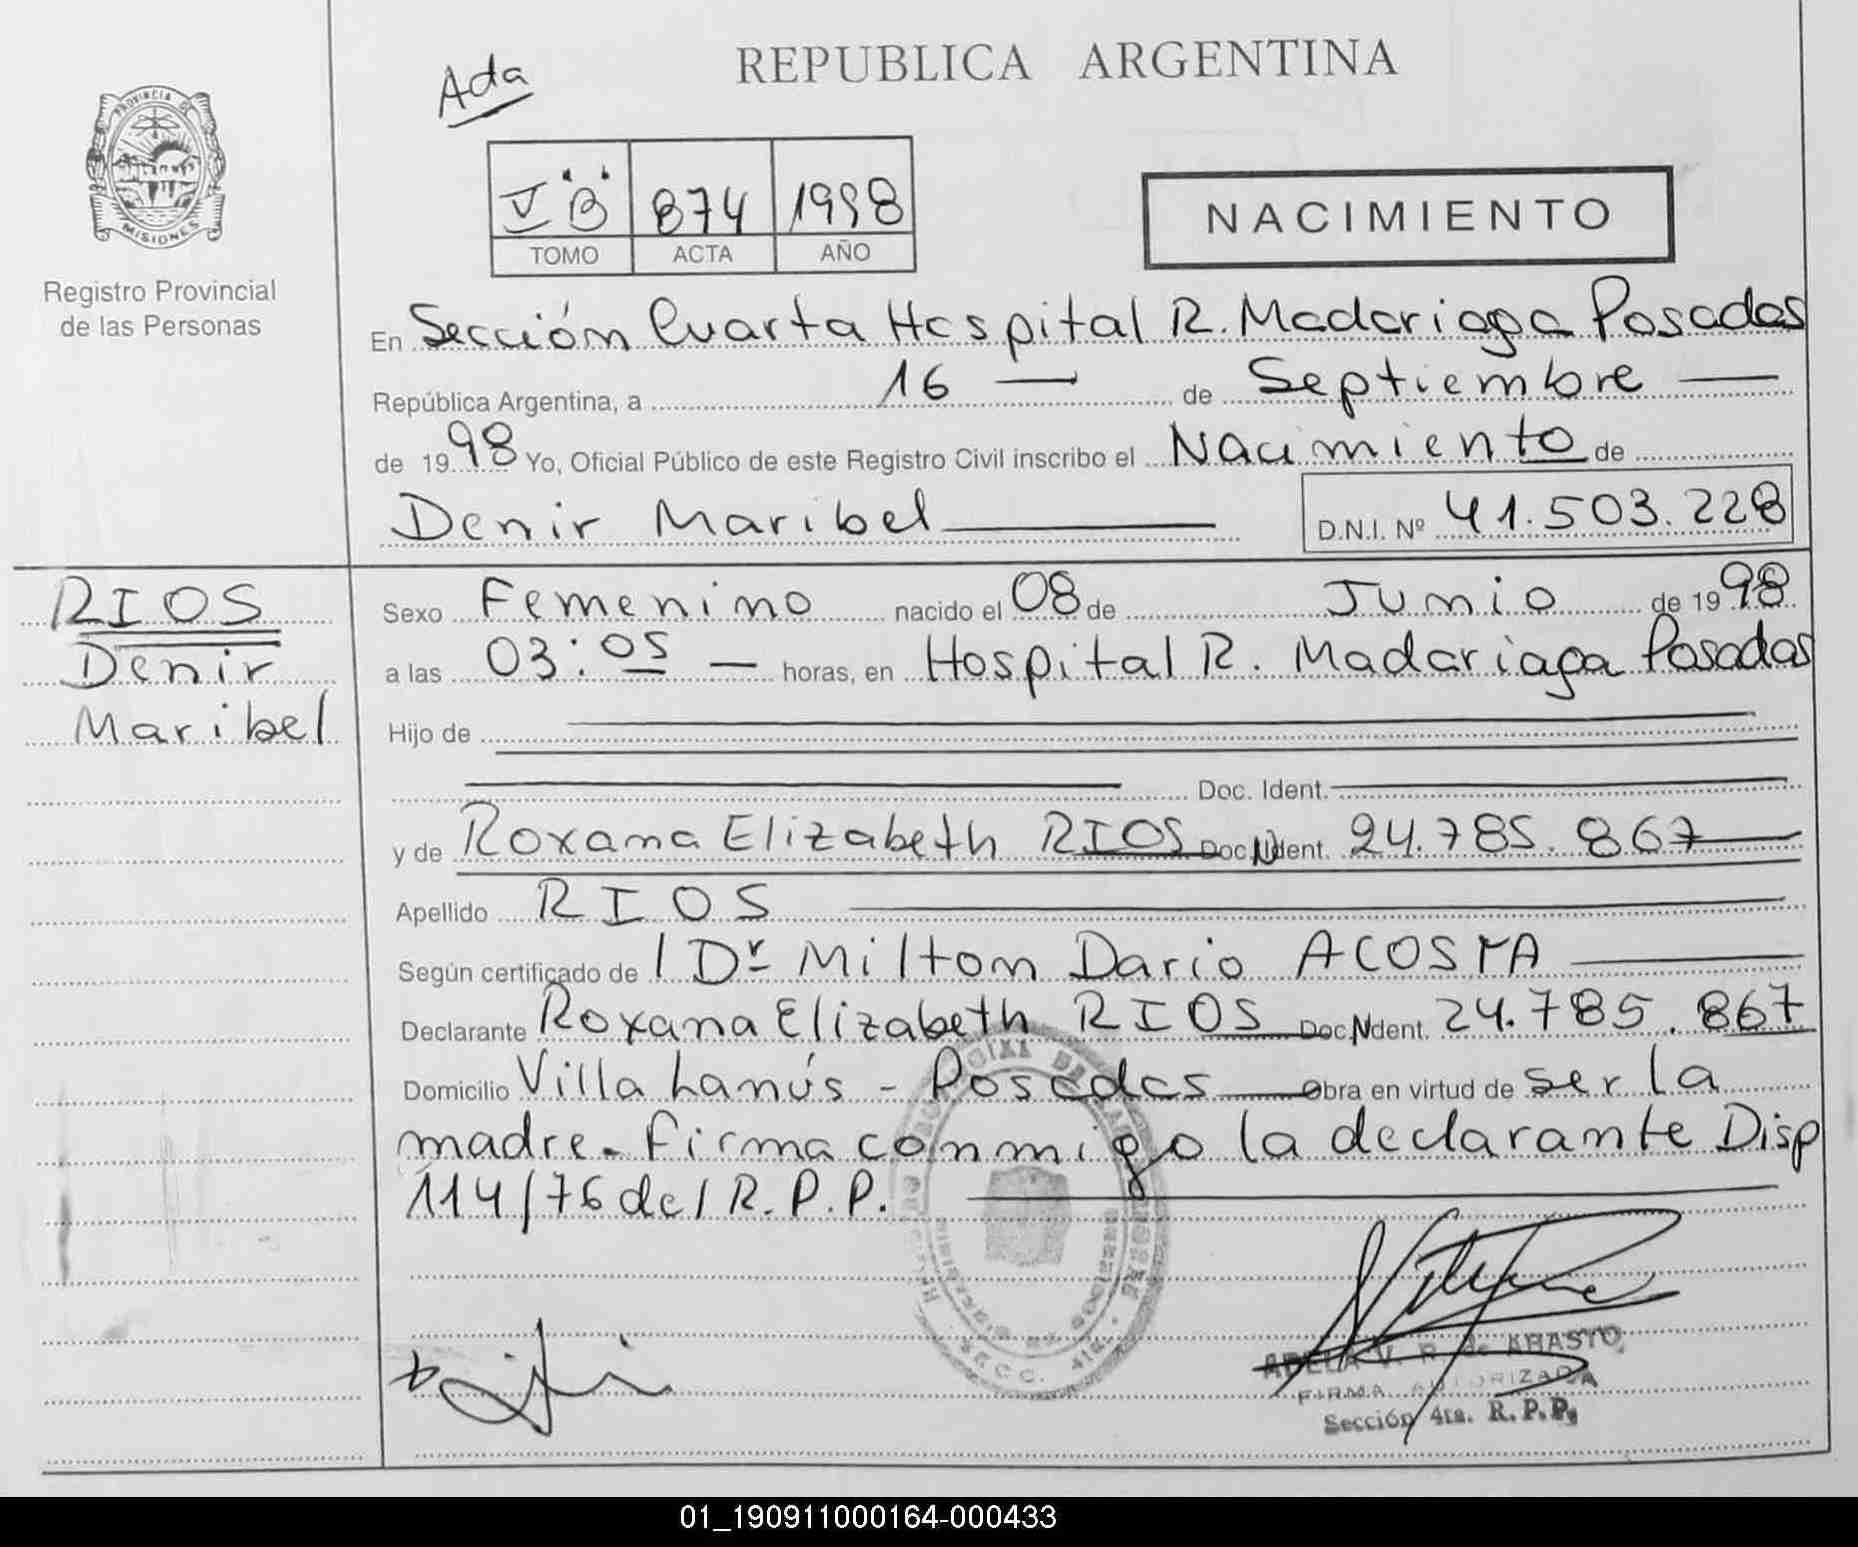 REPUBLICA ARGENTINA
Ada
PROVINCIA DE
MISIONES
Registro Provincial
de las Personas
V "B" 874 1998
TOMO ACTA AÑO
NACIMIENTO
En Sección Cuarta Hospital R. Madariaga Posadas
República Argentina, a 16 de Septiembre
de 1998 Yo, Oficial Público de este Registro Civil inscribo el Nacimiento de
Denir Maribel D.N.I. Nº 41.503.228
RIOS
Denir
Maribel
Sexo Femenino nacido el 08 de Junio de 1998
a las 03:05 horas, en Hospital R. Madariaga Posadas
Hijo de
Doc. Ident.
y de Roxana Elizabeth RIOS Doc. Ident. 24.785.867
Apellido RIOS
Según certificado de l Dr Milton Dario ACOSTA
Declarante Roxana Elizabeth RIOS Doc. Ident. 24.785.867
Domicilio Villa Lanús - Posadas Obra en virtud de ser la
madre. Firma conmigo la declarante Disp
114/76 del R.P.P.
ADELA V. R. de ARASTO
FIRMA AUTORIZADA
Sección 4ta. R.P.P.
01_190911000164-000433